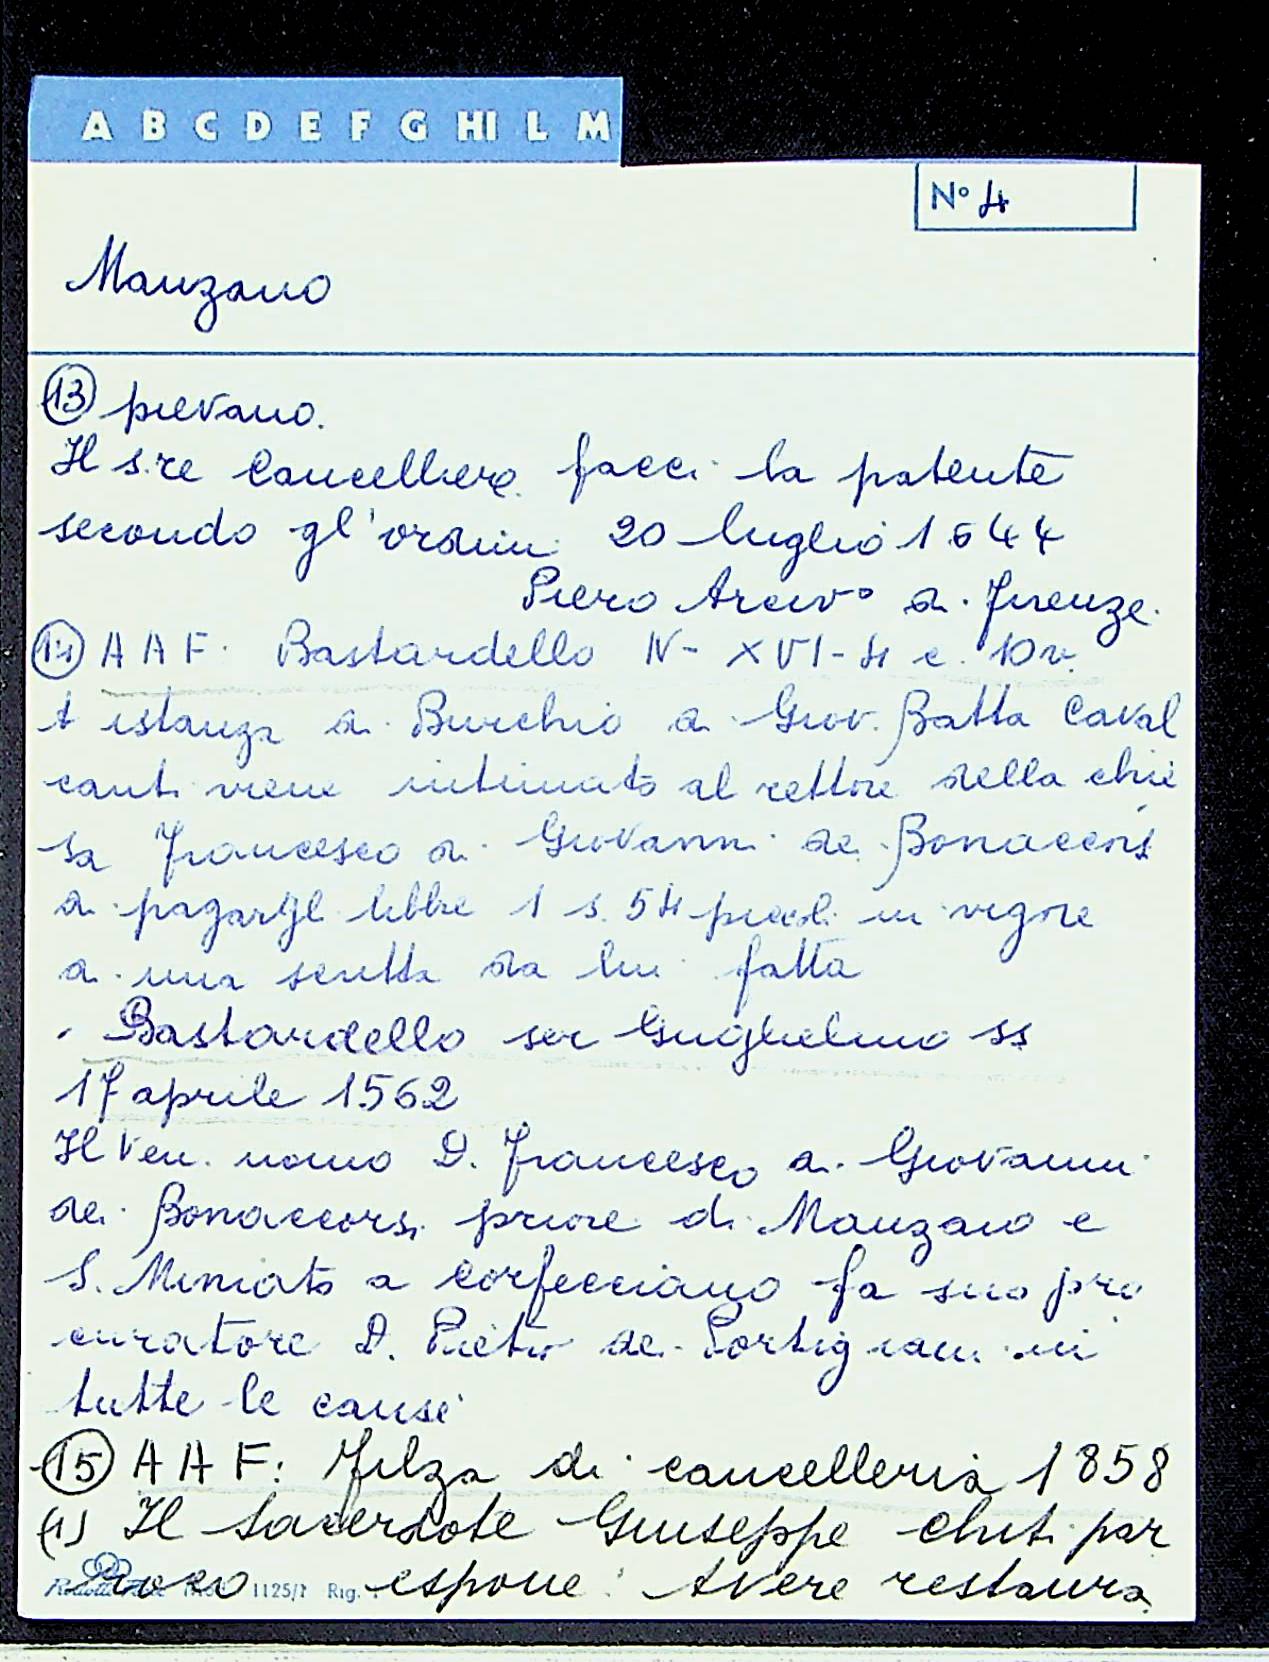 A B C D E F G HI L M
N° 4
Manzano
(13) pievano.
Il s.re Cancelliere facci la patente
secondo gl'ordini 20 luglio 1644
Piero Arciv° di Firenze.
(14) A A F. Bastardello IV- XVI-4 c. 10v.
A istanza di Burchio di Giov. Batta Caval
canti viene intimato al rettore della chie
sa Francesco di Giovanni dei Bonaccorsi
di pagargli libbre 1 s. 54 piccoli in vigore
di una scritta da lui fatta
Bastardello ser Guglielmo ss
17 aprile 1562
Il Ven. uomo D. Francesco di Giovanni
dei Bonaccorsi priore di Manzano e
S. Miniato a Corfecciano fa suo pro
curatore D. Pietro dei Portigiani in
tutte le cause
(15) A A F: Filza di cancelleria 1858
(1) Il Sacerdote Giuseppe Chiti par
roco espone: Avere restaura
1125/1 Rig.